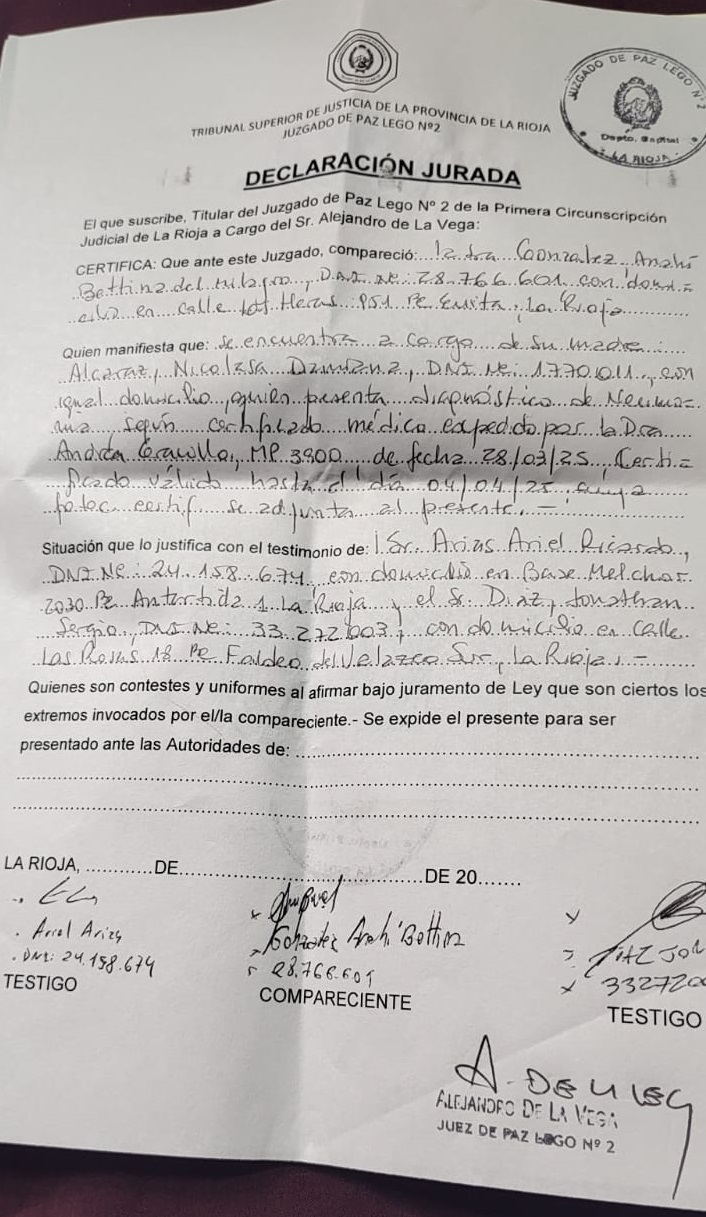 JUZGADO DE PAZ LEGO Nº 2
Depto. Capital
LA RIOJA
TRIBUNAL SUPERIOR DE JUSTICIA DE LA PROVINCIA DE LA RIOJA
JUZGADO DE PAZ LEGO Nº2
DECLARACIÓN JURADA
El que suscribe, Titular del Juzgado de Paz Lego Nº 2 de la Primera Circunscripción
Judicial de La Rioja a Cargo del Sr. Alejandro de La Vega:
CERTIFICA: Que ante este Juzgado, compareció: la Sra Gonzalez Anahí
Bettina del Milagro, DNI Nº: 28.766.601 con domi=
cilio en calle Las Heras 951 Bº Evita, La Rioja
Quien manifiesta que: se encuentra a cargo de su madre
Alcaraz, Nicolasa Damiana, DNI Nº: 1.770.011, con
igual domicilio, quien presenta diagnóstico de Neumo=
nia según certificado médico expedido por la Dra
Andrea MP 3900 de fecha 28/03/25, Certi=
ficado válido hasta el día 04/04/25, cuya
fotoc. certif. se adjunta al presente.-
Situación que lo justifica con el testimonio de: Sr. Arias Ariel Ricardo,
DNI Nº: 24.158.674 con domicilio en Base Melchor
2030 Bº Antartida 1 La Rioja y el Sr. Diaz, Jonathan
Sergio, DNI Nº: 33.272.003, con domicilio en calle
Las Rosas 18 Bº Faldeo del Velazco Sur, La Rioja.-
Quienes son contestes y uniformes al afirmar bajo juramento de Ley que son ciertos los
extremos invocados por el/la compareciente.- Se expide el presente para ser
presentado ante las Autoridades de:
LA RIOJA, ............DE............DE 20.......
Ariel Arias
DNI: 24.158.674
TESTIGO
Gonzalez Anahí Bettina
28.766.601
COMPARECIENTE
3327200
TESTIGO
ALEJANDRO DE LA VEGA
JUEZ DE PAZ LEGO Nº 2